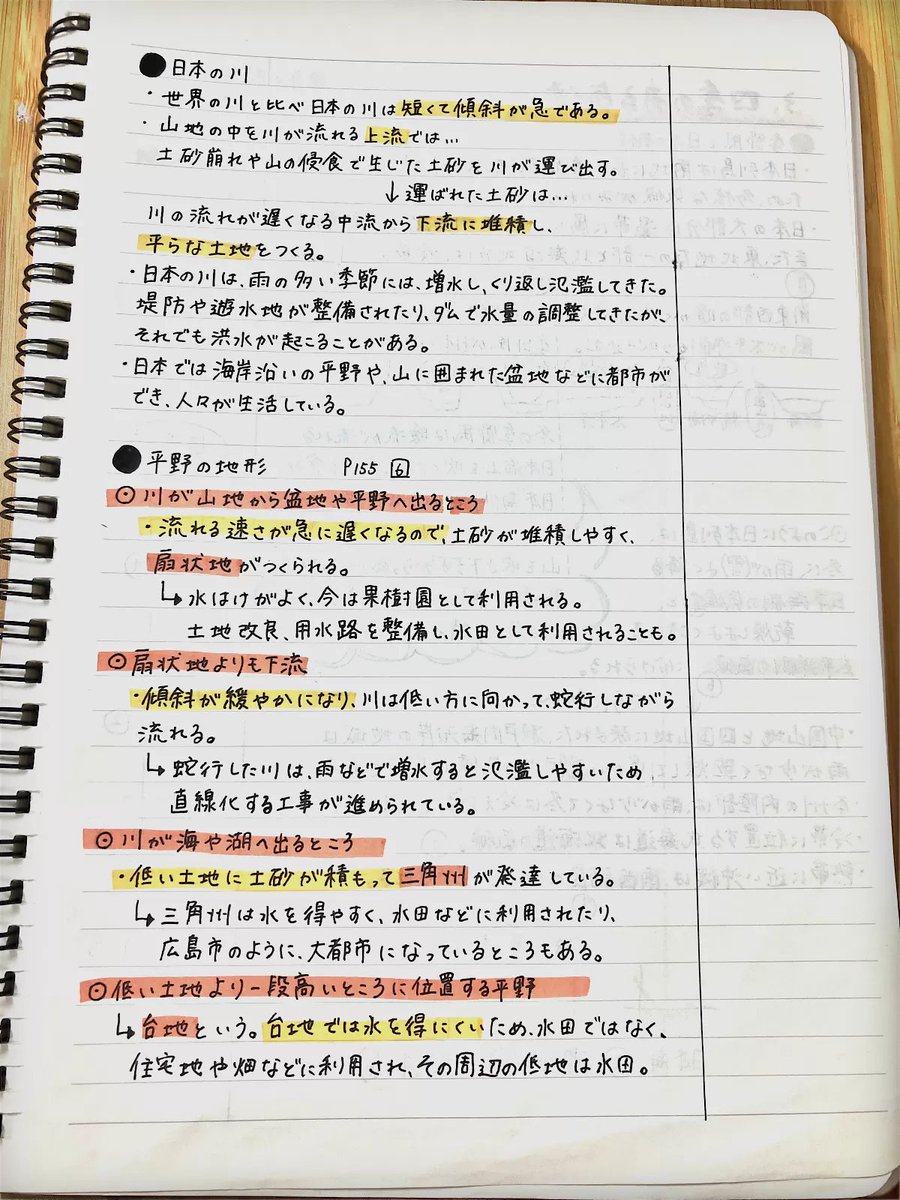 ●日本の川
・世界の川と比べ日本の川は短くて傾斜が急である。
・山地の中を川が流れる上流では…
土砂崩れや山の侵食で生じた土砂を川が運び出す。
↓運ばれた土砂は…
川の流れが遅くなる中流から下流に堆積し、
平らな土地をつくる。
・日本の川は、雨の多い季節には、増水し、くり返し氾濫してきた。
堤防や遊水地が整備されたり、ダムで水量の調整してきたが、
それでも洪水が起こることがある。
・日本では海岸沿いの平野や、山に囲まれた盆地などに都市が
でき、人々が生活している。
●平野の地形 P155 6
⊙川が山地から盆地や平野へ出るところ
・流れる速さが急に遅くなるので、土砂が堆積しやすく、
扇状地がつくられる。
↳水はけがよく、今は果樹園として利用される。
土地改良、用水路を整備し、水田として利用されることも。
⊙扇状地よりも下流
・傾斜が緩やかになり、川は低い方に向かって、蛇行しながら
流れる。
↳蛇行した川は、雨などで増水すると氾濫しやすいため
直線化する工事が進められている。
⊙川が海や湖へ出るところ
・低い土地に土砂が積もって三角州が発達している。
↳三角州は水を得やすく、水田などに利用されたり、
広島市のように、大都市になっているところもある。
⊙低い土地より一段高いところに位置する平野
↳台地という。台地では水を得にくいため、水田ではなく、
住宅地や畑などに利用され、その周辺の低地は水田。